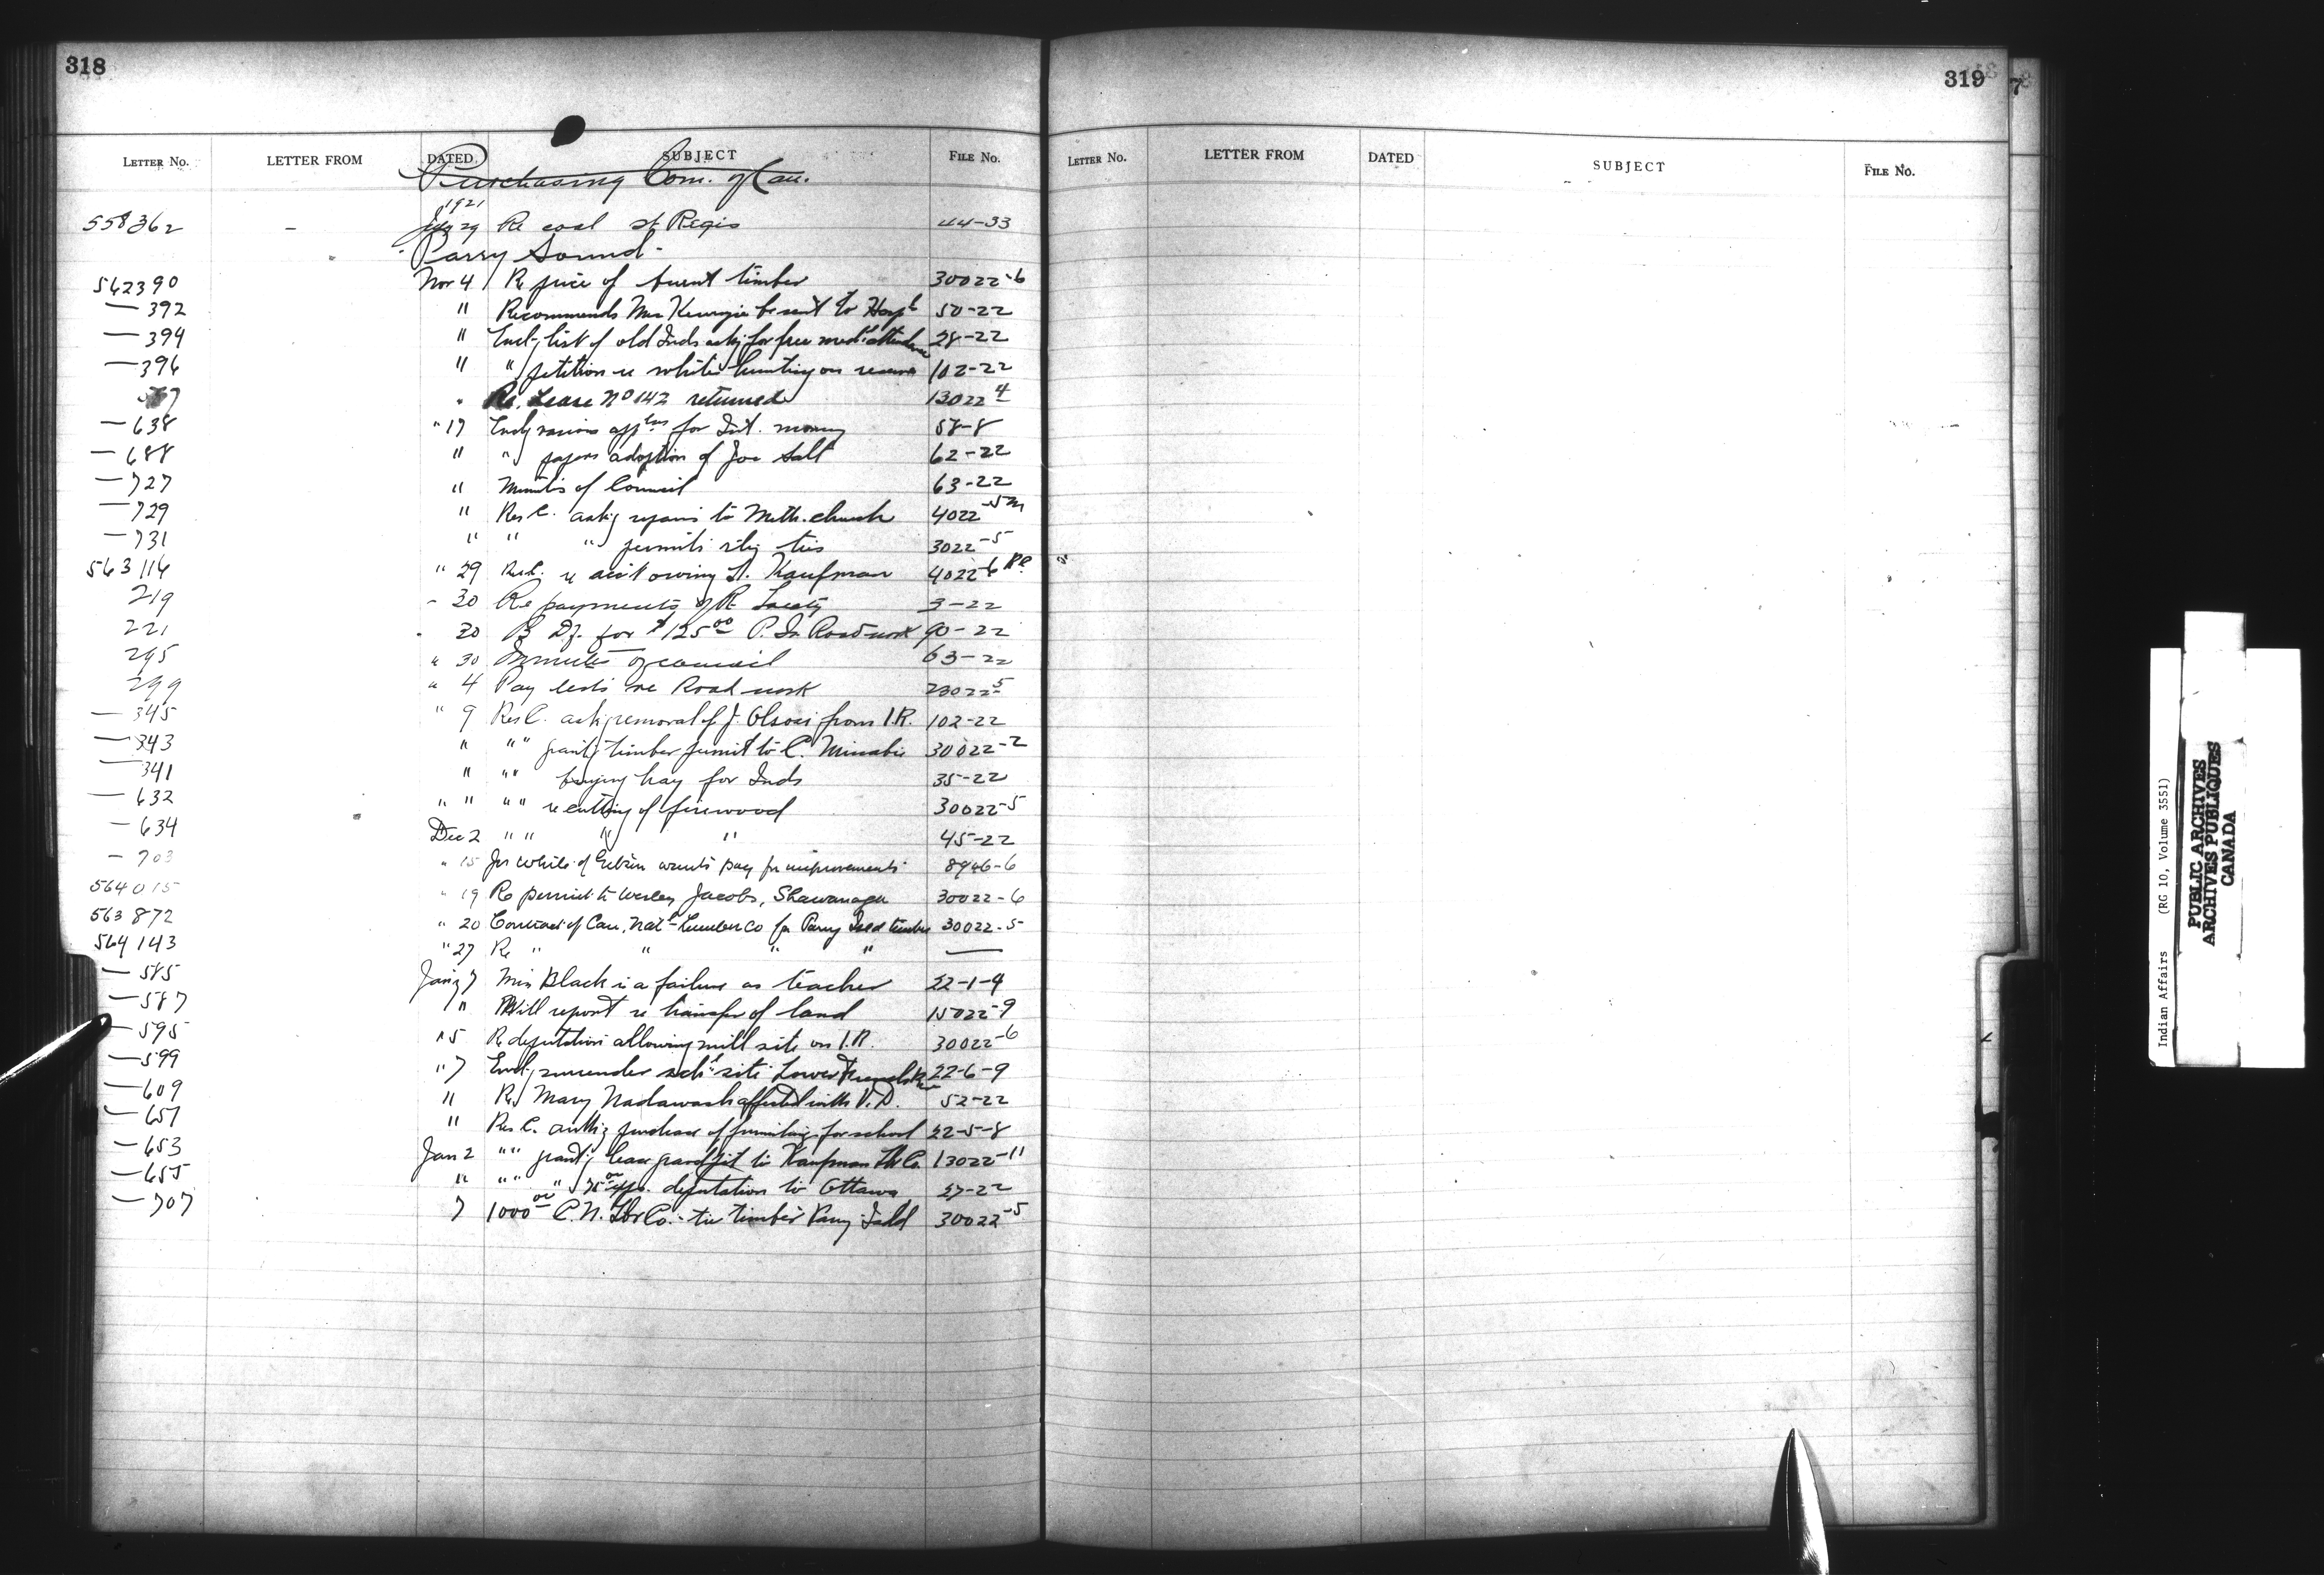 318
LETTER NO. LETTER FROM DATED SUBJECT FILE No.
Purchasing Com. of Can.
1921
558362 - July 29 Re coal St Regis 44-33
Parry Sound -
562390 Nov 4 Re price of burnt timber 30022-6
— 392 " Recommends Mrs be sent to Hospl 50-22
— 394 " Encl'g list of old Inds ask'g for free medl attendance 28-22
— 396 " " petition re whites hunting on reserve 102-22
" Re. Lease No 142 returned 13022 4
— 638 " 17 Encl'g various appl'ns for Int. money 58-8
— 688 " " papers adoption of Joe Salt 62-22
— 727 " Minutes of Council 63-22
— 729 " Res C. ask'g repairs to Meth. church 4022-5 m
— 731 " " " permits ties 3022-5
563116 " 29 Res C. re acct owing L. Kaufman 4022-6
219 - 30 Re payments of R. Treaty 3-22
221 - 30 for $125 00 P. Is. Road work 90-22
295 " 30 Minutes of council 63-22
299 " 4 Pay lists re Road work 23022 5
— 345 " 9 Res C. ask'g removal of J. from I.R. 102-22
— 343 " " " grant'g timber permit to C. 30022-2
— 341 " " " buying hay for Inds 35-22
— 632 " " " " re cutting of firewood 30022-5
— 634 Dec 2 " " " " 45-22
— 703 " 15 Jos White of wants pay for improvements 8946-6
564015 " 19 Re permit to Wesley Jacobs, Shawanaga 30022-6
563872 " 20 Contract of Can. Natl Lumber Co for Parry Isld timber 30022-5
564143 " 27 Re " " " " —
— 585 Jany 7 Miss Black is a failure as teacher 22-1-9
— 587 " Will report re transfer of land 15022-9
— 595 " 5 Re deputation allowing mill site on I.R. 30022-6
— 599 " 7 Encl'g surrender schl site Lower French R. 22-6-9
— 609 " Re Mary Nadawash affected with V.D. 52-22
— 651 " Res C. auth'g purchase of furnishings for school 22-5-8
— 653 Jan 2 " " grant'g lease gravel pit to Kaufman Lbr Co. 13022-11
— 655 " " " " 75 00 exps. deputation to Ottawa 27-22
— 707 7 1000 00 C.N. Lbr Co. - tie timber Parry Isld 30022-5
319
LETTER NO. LETTER FROM DATED SUBJECT FILE NO.
7
Indian Affairs (RG 10, Volume 3551)
PUBLIC ARCHIVES
ARCHIVES PUBLIQUES
CANADA